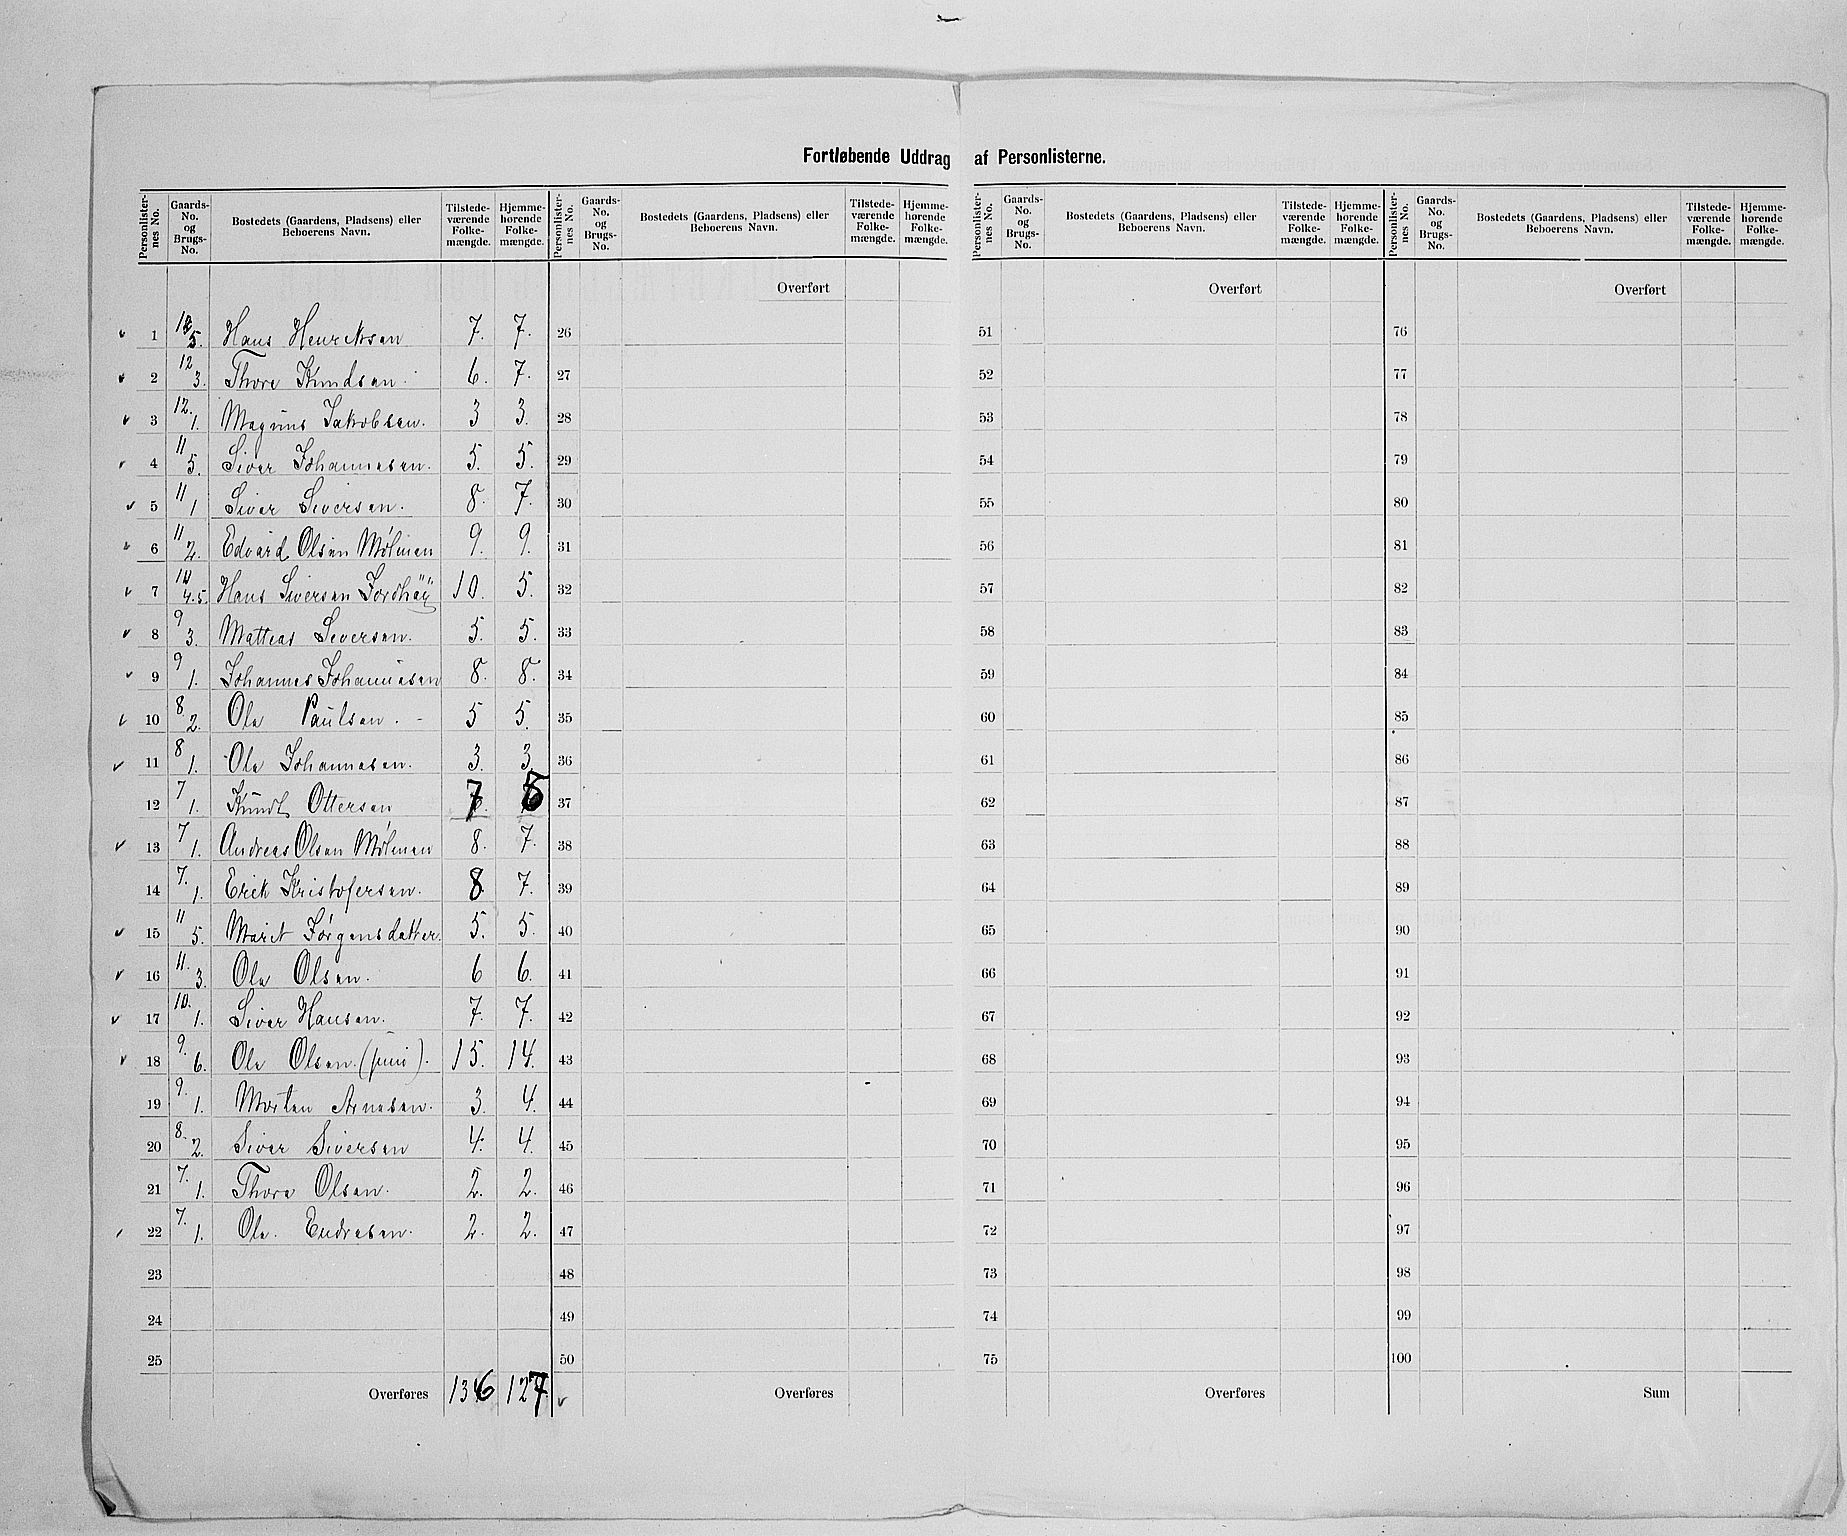 Fortløbende Uddrag af Personlisterne.
Personlister-nes No. Gaards-No. og Brugs-No. Bostedets (Gaardens, Pladsens) eller Beboerens Navn. Tilstede-værende Folke-mængde. Hjemme-hørende Folke-mængde.
1 12/5. Hans Henriksen 7. 7.
2 12/3. Thore Knudsen. 6. 7.
3 12./1. Magnus Jakobsen. 3 3.
4 11/5. Siver Johannesen. 5. 5.
5 11/1 Siver Siversen. 8. 7.
6 11/2. Edvard Olsen Mølmen 9. 9.
7 10/4.5. Hans Siversen Jordhöy 10. 5.
8 9/3. Mattias Siversen. 5. 5.
9 9/1. Johannes Johannesen 8. 8.
10 8./2. Ole Paulsen. 5 5.
11 8/1. Ole Johannesen. 3. 3.
12 7/1. Knudt Ottersen 7
13 7/1. Andreas Olsen Mølmen 8. 7.
14 7./1. Erik Kristofersen. 8. 7.
15 11/5. Marit Jørgensdatter. 5. 5.
16 11./3. Ole Olsen. 6 6.
17 10./1. Siver Hansen. 7. 7.
18 9./6. Ole Olsen. 15. 14.
19 9./1. Morten Arnesen. 3. 4.
20 8./2. Siver Siversen 4. 4.
21 7./1. Thore Olsen. 2. 2.
22 7./1. Ole. Endresen. 2. 2.
23
24
25
Overføres 136 127
Personlister-nes No. Gaards-No. og Brugs-No. Bostedets (Gaardens, Pladsens) eller Beboerens Navn. Tilstede-værende Folke-mængde. Hjemme-hørende Folke-mængde.
Overført
26
27
28
29
30
31
32
33
34
35
36
37
38
39
40
41
42
43
44
45
46
47
48
49
50
Overføres
Personlister-nes No. Gaards-No. og Brugs-No. Bostedets (Gaardens, Pladsens) eller Beboerens Navn. Tilstede-værende Folke-mængde. Hjemme-hørende Folke-mængde.
Overført
51
52
53
54
55
56
57
58
59
60
61
62
63
64
65
66
67
68
69
70
71
72
73
74
75
Overføres
Personlister-nes No. Gaards-No. og Brugs-No. Bostedets (Gaardens, Pladsens) eller Beboerens Navn. Tilstede-værende Folke-mængde. Hjemme-hørende Folke-mængde.
Overført
76
77
78
79
80
81
82
83
84
85
86
87
88
89
90
91
92
93
94
95
96
97
98
99
100
Sum